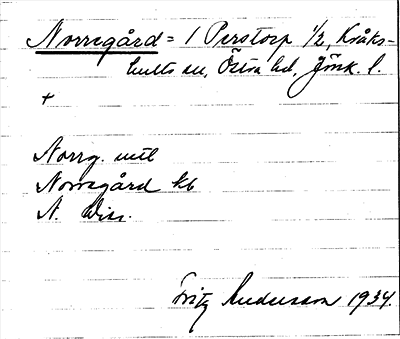 Norregård = 1 Perstorp 1/2, Kråks-
hults sn, Östra hd, Jönk. l.
+
Norrg. utt
Norregård kb
N. Diss.
Fritz Andersson 1934.